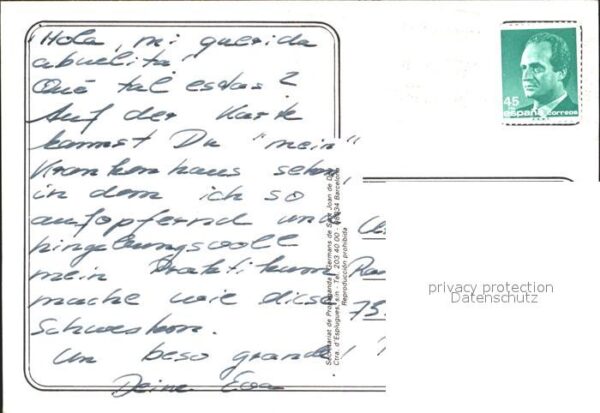 Hola, mi querida
abuelita
Qué tal estas?
Auf der Karte
kannst Du "mein"
Krankenhaus sehen,
in dem ich so
aufopfernd und
hingebungsvoll
mein Praktikum
mache wie diese
Schwestern.
Un beso grande!
Deine Eva
Secretariat de Propaganda, Germans de Sant Joan de Déu
Ctra. d'Esplugues, s/n - Tel. 203 40 00 - 08034 Barcelona
Reproducción prohibida
45
PTA
españa correos
privacy protection
Datenschutz